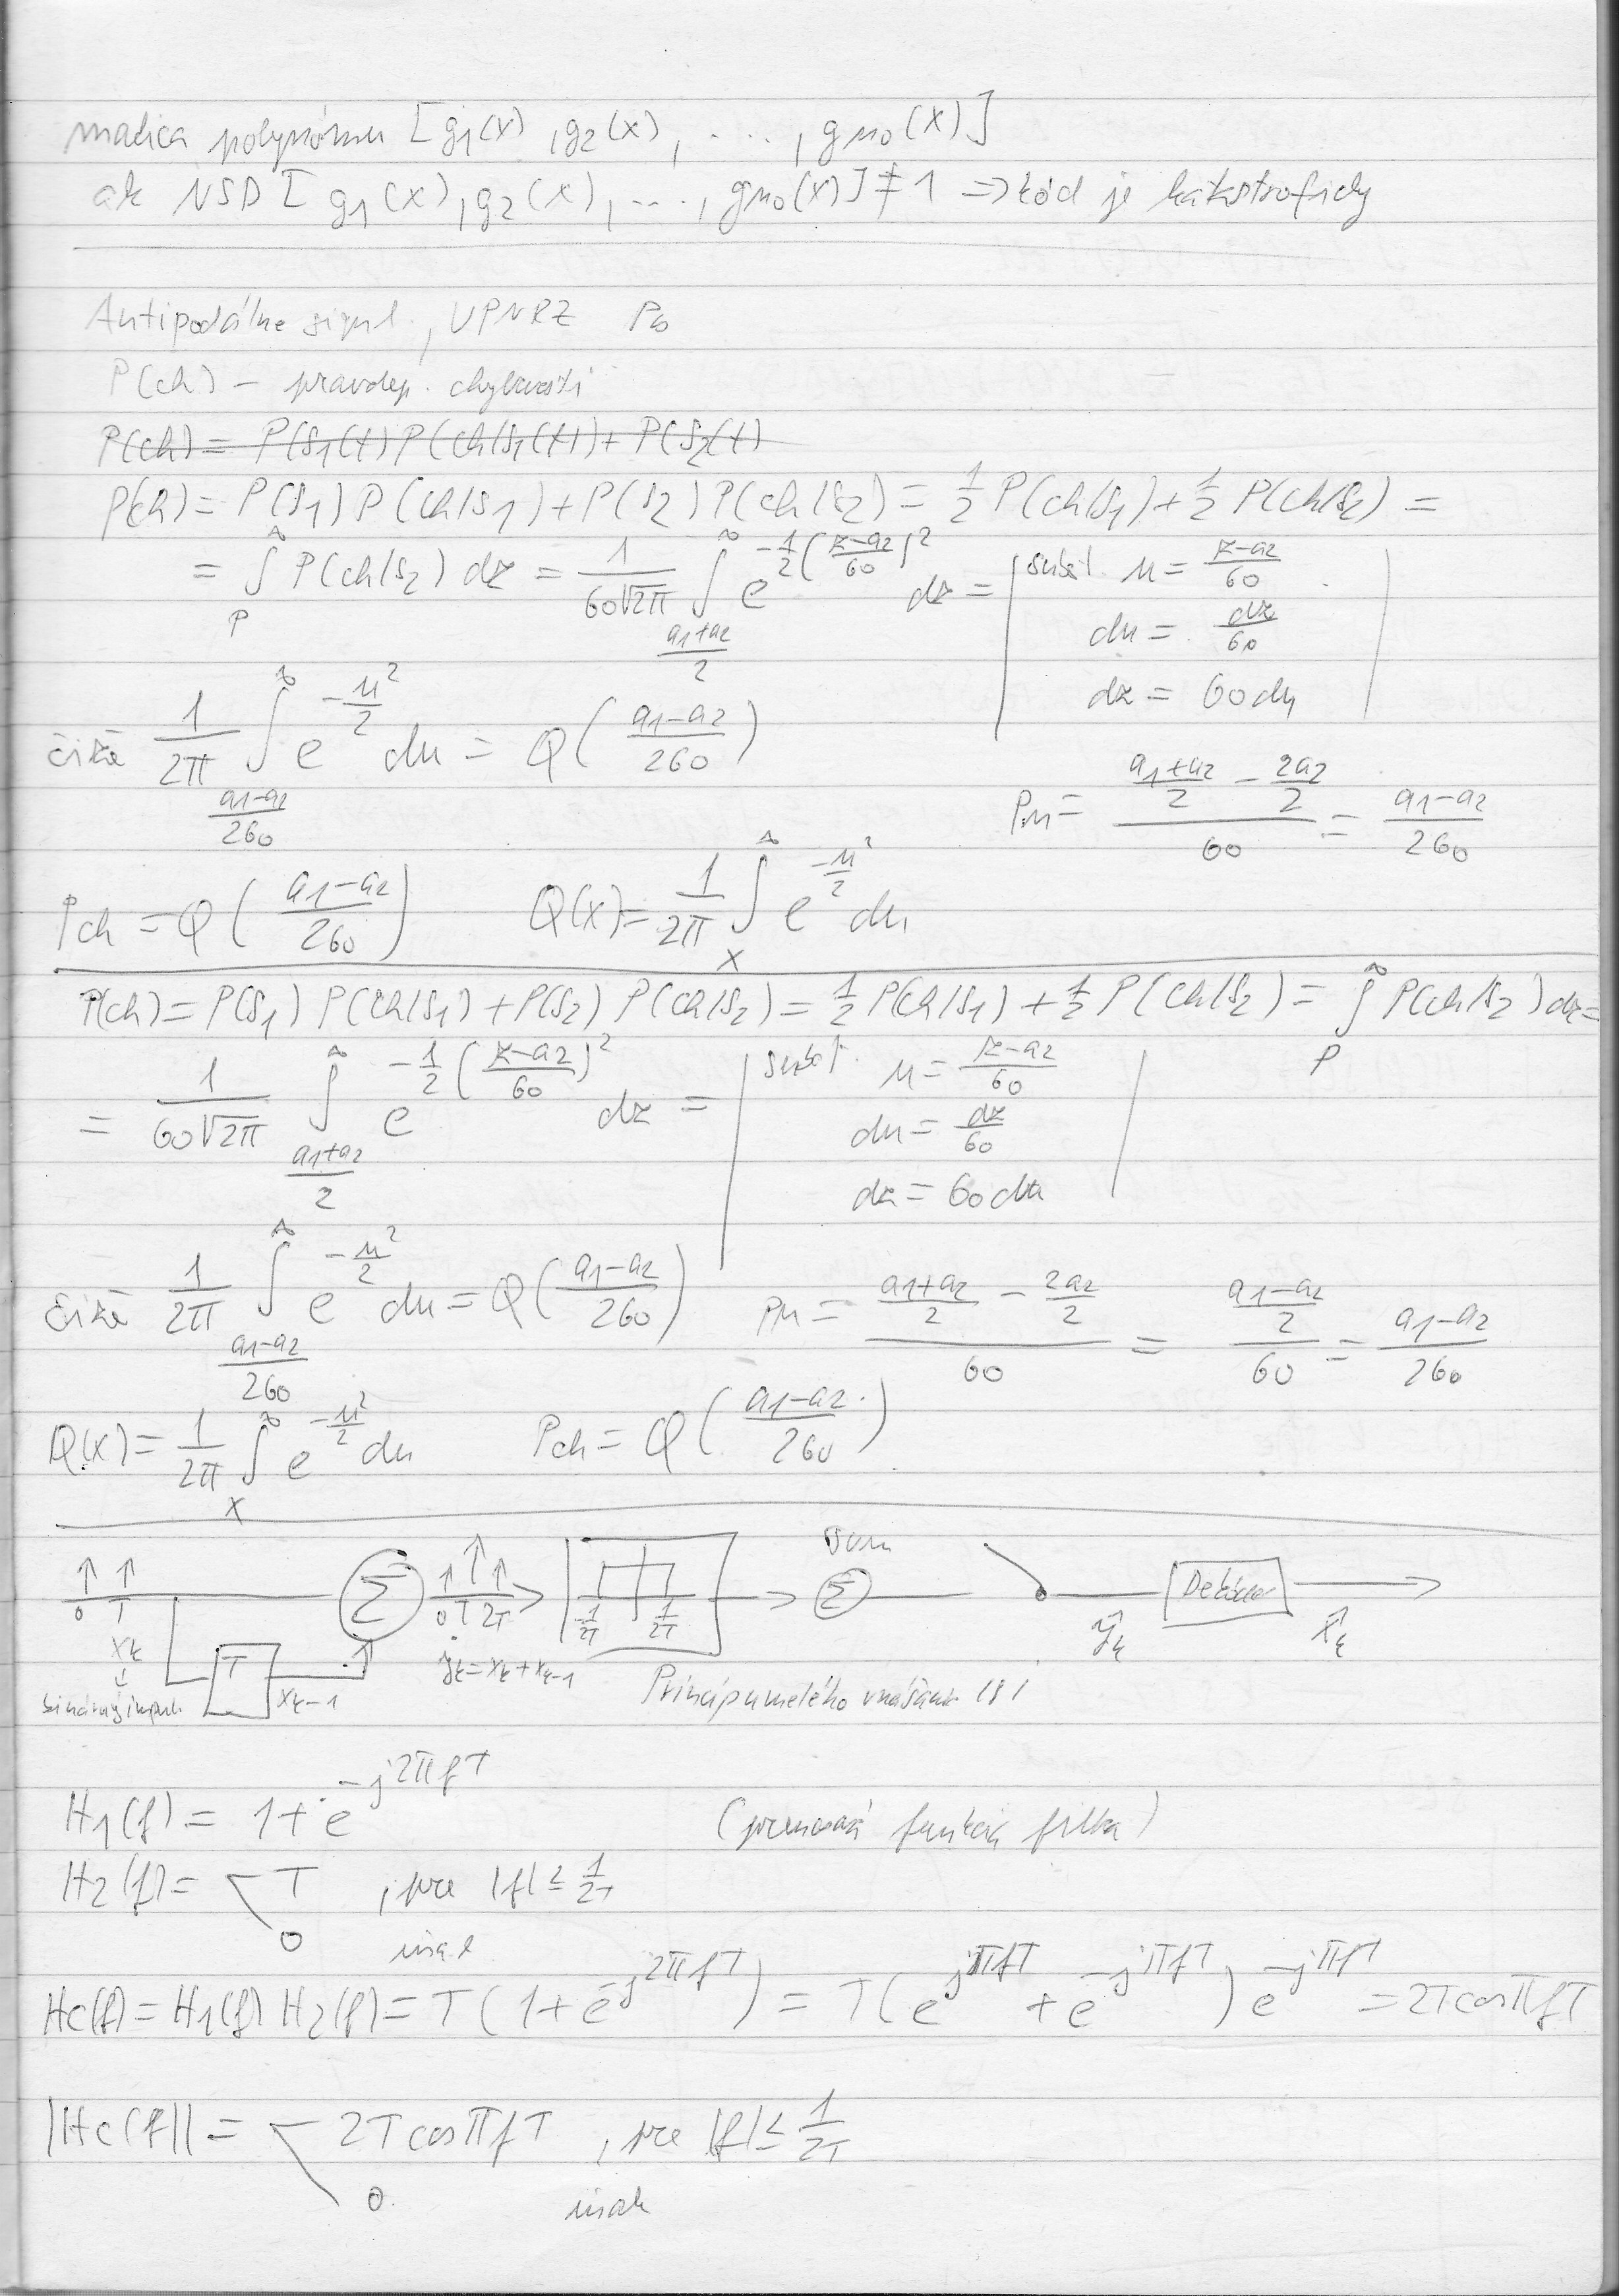 matica polynómu [g1(x), g2(x), ..., gno(x)]
ak NSD [g1(x), g2(x), ..., gno(x)] ≠ 1 => kód je katastrofický
Antipodálne signál., UPNRZ Pb
P(ch) - pravdep. chybovosti
P(ch) = P(s1(t)) P(ch/s1(t)) + P(s2(t)
P(ch) = P(s1) P(ch/s1) + P(s2) P(ch/s2) = 1/2 P(ch/s1) + 1/2 P(ch/s2) =
= ∫_p^∞ P(ch/s2) dz = 1/(б0√2π) ∫_{(a1+a2)/2}^∞ e^{-1/2((z-a2)/б0)^2} dz = | subst. u = (z-a2)/б0
du = dz/б0
dz = б0 du |
čiže 1/2π ∫_{(a1-a2)/2б0}^∞ e^{-u²/2} du = Q((a1-a2)/2б0)
Pu = ((a1+a2)/2 - 2a2/2)/б0 = (a1-a2)/2б0
Pch = Q((a1-a2)/2б0) Q(x) = 1/2π ∫_x^∞ e^{-u²/2} du
P(ch) = P(s1) P(ch/s1) + P(s2) P(ch/s2) = 1/2 P(ch/s1) + 1/2 P(ch/s2) = ∫_p^∞ P(ch/s2) dz =
= 1/(б0√2π) ∫_{(a1+a2)/2}^∞ e^{-1/2((z-a2)/б0)^2} dz = | subst. u = (z-a2)/б0
du = dz/б0
dz = б0 du |
čiže 1/2π ∫_{(a1-a2)/2б0}^∞ e^{-u²/2} du = Q((a1-a2)/2б0) Pu = ((a1+a2)/2 - 2a2/2)/б0 = ((a1-a2)/2)/б0 = (a1-a2)/2б0
Q(x) = 1/2π ∫_x^∞ e^{-u²/2} du Pch = Q((a1-a2)/2б0)
šum
Σ Σ Dekóder
0 T 0 T 2T -1/2T 1/2T ŷk x̂k
xk T xk-1 yk = xk + xk-1
binárny impulz Princíp umelého vnášania ISI
H1(f) = 1 + e^{-j2πfT} (prenosová funkcia filtra)
H2(f) = T , pre |f| ≤ 1/2T
0 inak
Hc(f) = H1(f) H2(f) = T(1 + e^{-j2πfT}) = T(e^{jπfT} + e^{-jπfT}) e^{-jπfT} = 2T cosπfT
|Hc(f)| = 2T cosπfT , pre |f| ≤ 1/2T
0 inak